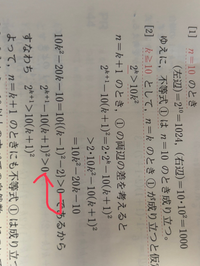 [1] n=10 のとき
(左辺)=2¹⁰=1024, (右辺)=10・10²=1000
ゆえに，不等式 ① は n=10 のとき成り立つ。
[2] k≧10 として，n=k のとき ① が成り立つと仮
2ᵏ>10k²
n=k+1 のとき，① の両辺の差を考えると
2ᵏ⁺¹−10(k+1)²=2・2ᵏ−10(k+1)²
>2・10k²−10(k+1)²
=10k²−20k−10
10k²−20k−10=10{(k−1)²−2}>0 であるから
2ᵏ⁺¹−10(k+1)²>0
すなわち 2ᵏ⁺¹>10(k+1)²
よって，n=k+1 のときにも不等式 ① は成り